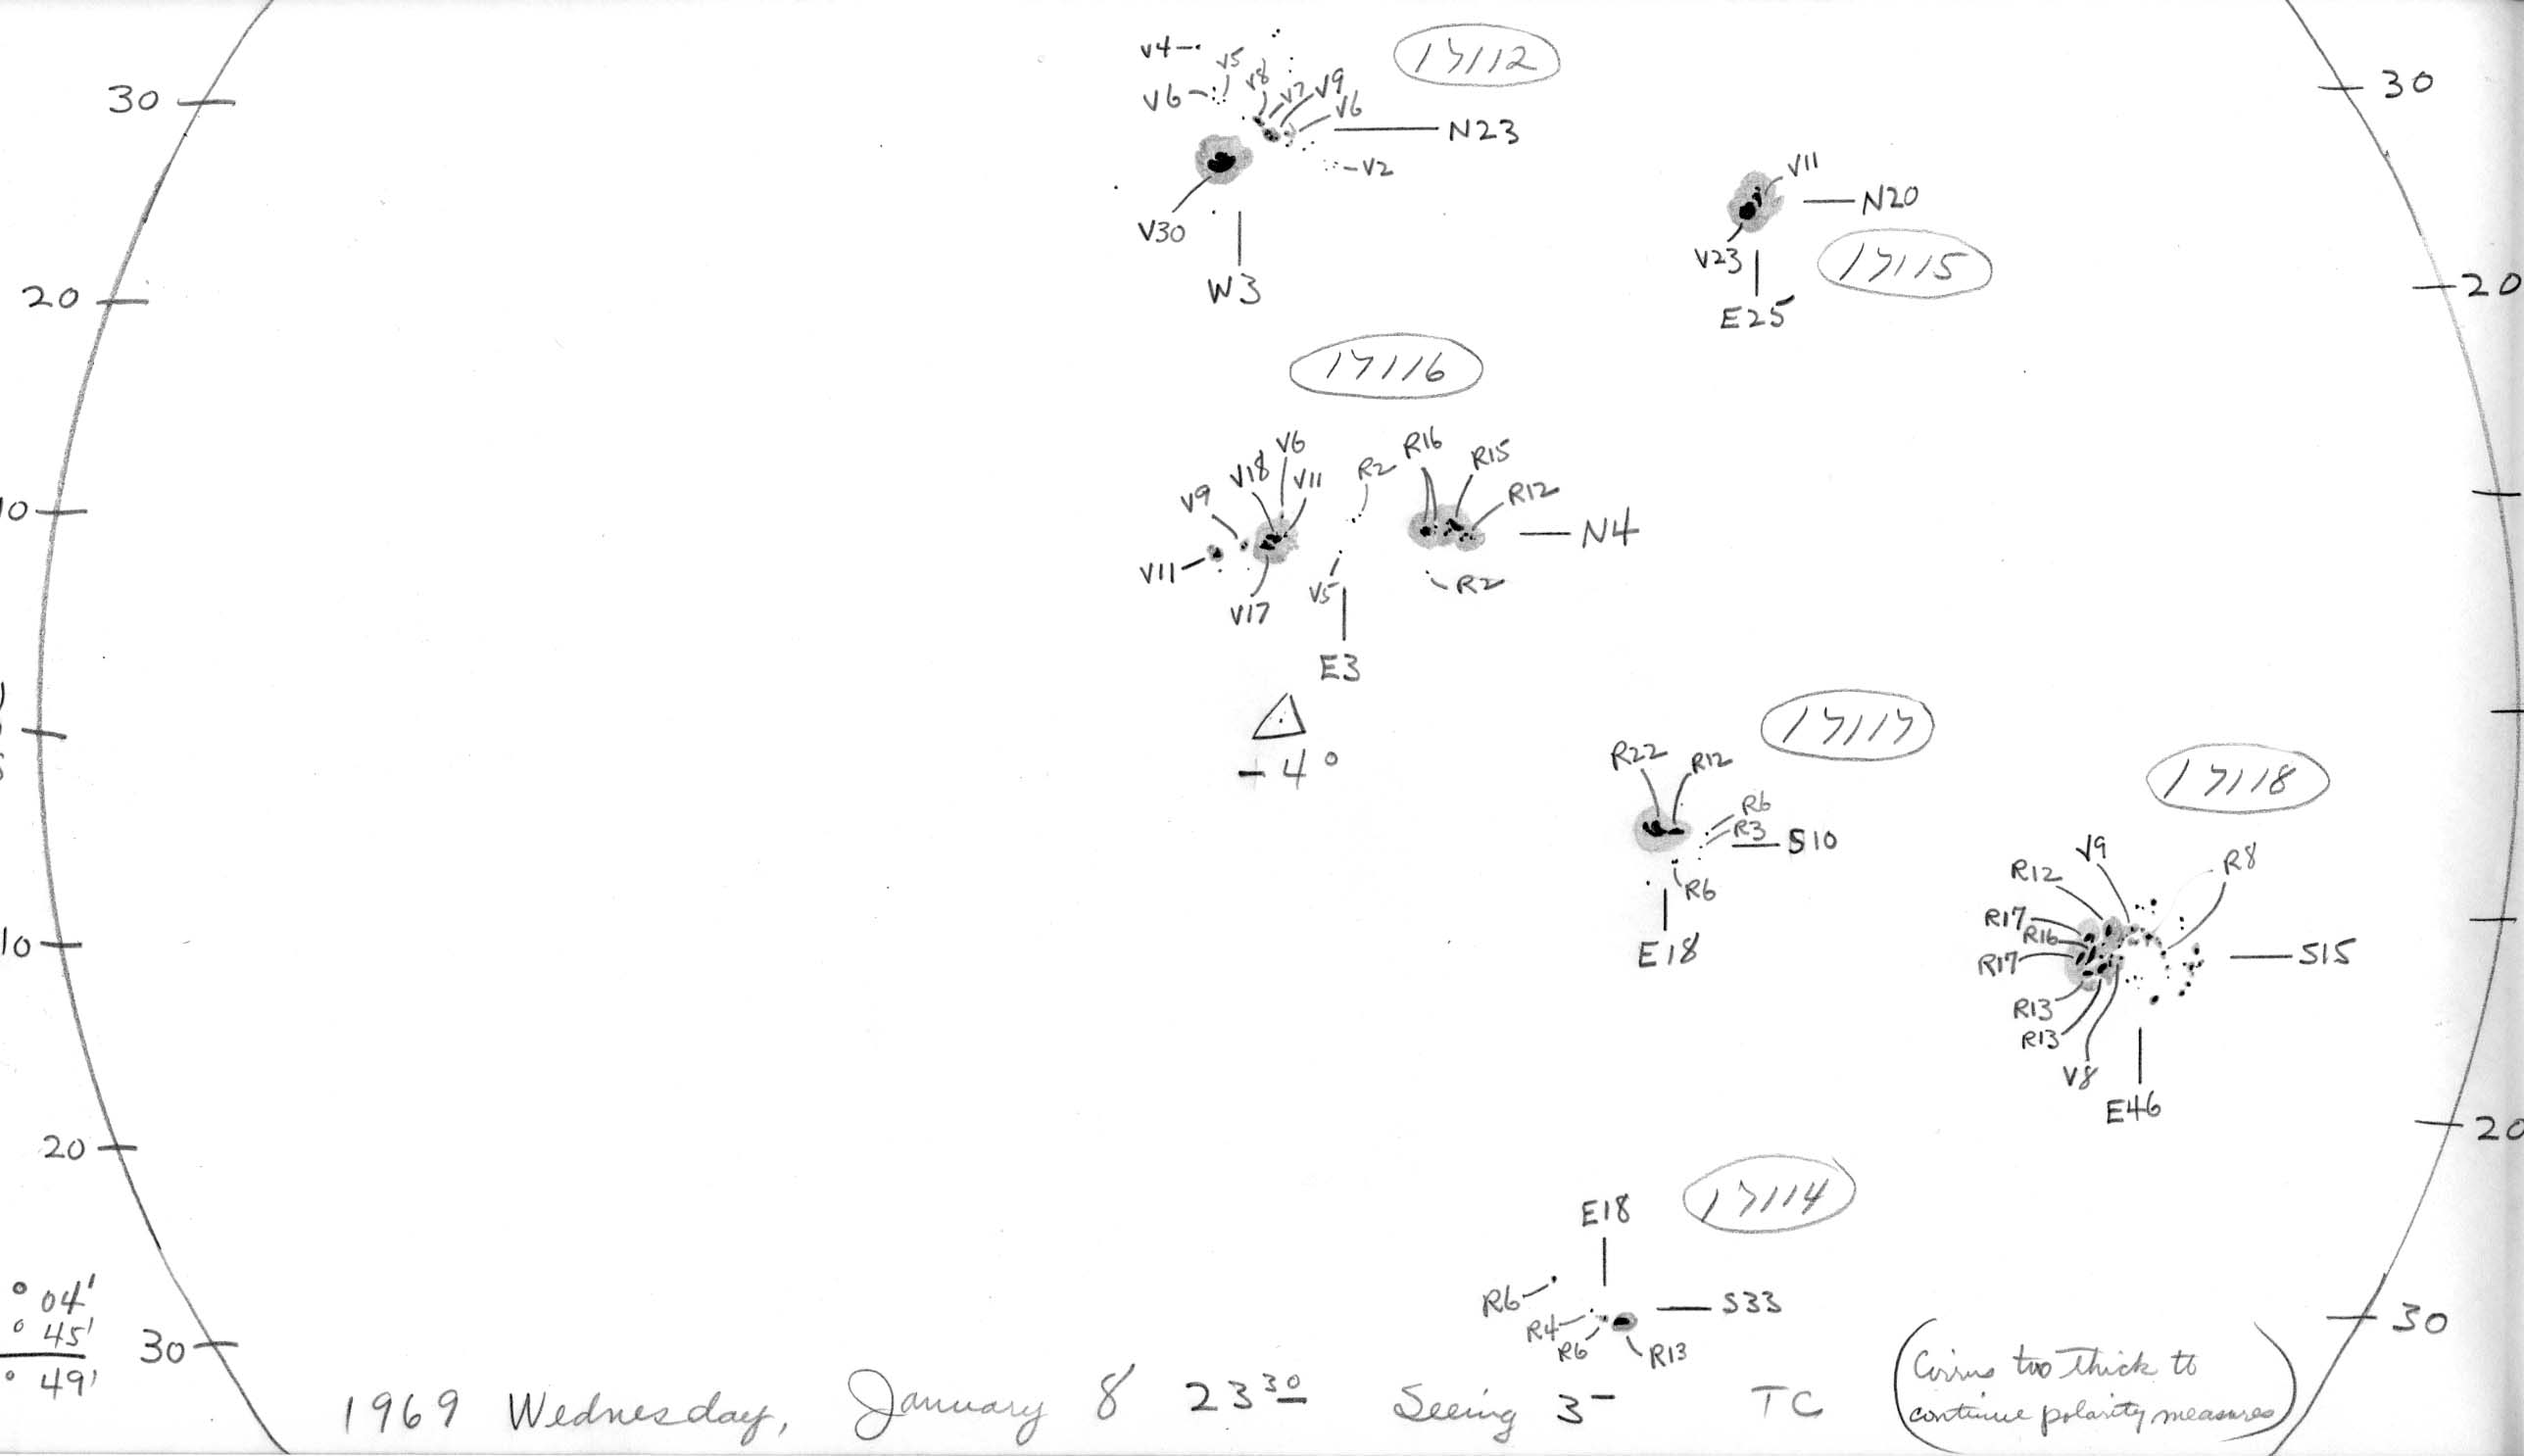 V4
V5
V6
V8
V7
V9
V6
17112
30
30
N23
V2
V11
N20
V30
V23
17115
W3
20
20
E25
17116
V6
R16
V18
V11
R2
R15
V9
R12
10
N4
V11
V5
R2
V17
E3
-4°
17117
R22
R12
17118
R6
R3
S10
V9
R8
R12
R6
R17
R16
10
E18
R17
S15
R13
R13
V8
E46
20
20
17114
E18
R6
S33
° 04'
R4
° 45'
30
R6
R13
30
° 49'
(Cirrus too thick to
continue polarity measures)
1969 Wednesday, January 8 23 30 Seeing 3- TC